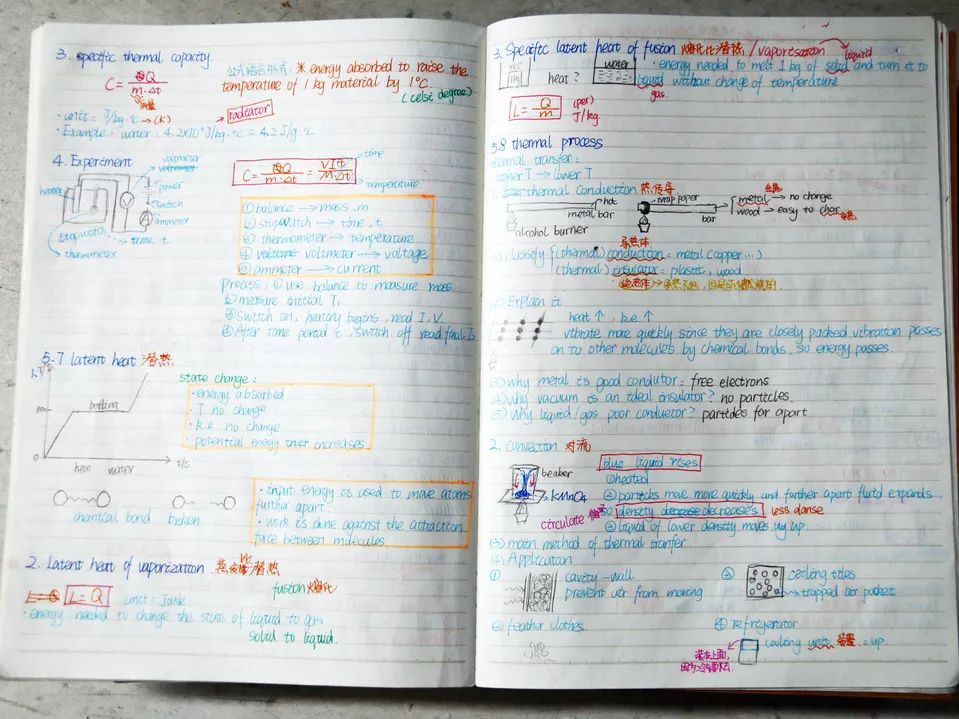 3. specific thermal capacity.
C = Q / m·Δt
质量
公式语言形式: * energy absorbed to raise the
temperature of 1 kg material by 1°C.
(celsi degree)
· unit: J/kg·°C → (K)
radiator
· Example: water: 4.2×10³ J/kg·°C = 4.2 J/g·°C
4. Experiment
voltmeter
power
switch
ammeter
heater
stopwatch
→ time t.
thermometer
C = Q / m·Δt = VIt / m·Δt
time
temperature
① balance → mass, m
② stopwatch → time, t
③ thermometer → temperature
④ voltmeter → voltage
⑤ ammeter → current
Process: ① use balance to measure mass.
② measure initial T₁
③ Switch on, heating begins, read I, V.
④ After time period t, switch off read final T₂
5.7 latent heat 潜热
boiling
0
heat water
t/s
state change:
· energy absorbed
· T no change
· k.e. no change
· potential energy increases
chemical bond
broken
· input energy is used to move atoms
further apart.
· work is done against the attraction
force between molecules
2. Latent heat of vaporization.
fusion 熔化
L = Q
unit: Joule
· energy needed to change the state of liquid to gas
solid to liquid.
3. Specific latent heat of fusion 熔化比潜热 / vaporisation
liquid
heat?
water
· energy needed to melt 1 kg of solid and turn it to
liquid without change of temperature
gas.
L = Q / m
(per)
J/kg.
5.8 thermal process
thermal transfer:
higher T → lower T
thermal Conduction 热传导
hot
metal bar
alcohol burner
wrap paper
bar
metal → no change
wood → easy to char
导热体
(1) classify {(thermal) conduction: metal (copper...)
(thermal) insulator: plastic, wood
绝热体
(2) Explain it
heat ↑, k.e. ↑
vibrate more quickly since they are closely packed vibration passes
on to other molecules by chemical bonds, so energy passes.
(3) why metal is good condutor: free electrons
(4) why vacuum is an ideal insulator? no particles.
(5) why liquid/gas poor conductor? particles far apart
2. convection 对流
beaker
KMnO₄
circulate
blue liquid rises
① heated
② particles move more quickly and further apart fluid expands.
density decreases less danse
③ liquid of lower density moves up.
(3) main method of thermal tranfer.
(4) Application
① cavity-wall
prevent air from moving
③ ceiling tiles
→ trapped air pocket
② feather clothes.
④ refrigerator
cooling unit 装置: up.
装在上面,